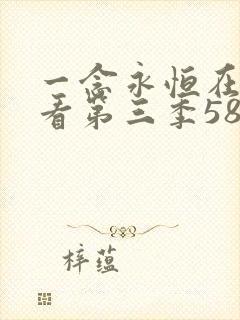 一念永恒在
看第三季58
梓蕴